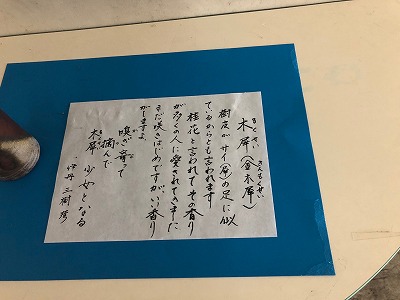 木犀(金木犀)
もくせい
きんもくせい
樹皮がサイ(犀)の足に似
ているからとも言われます
桂花と言われてその香り
が多くの人に愛されてきました
まだ咲きはじめですがいい香り
がしますよ
嗅ぎ寄って
摘んで
木犀 少女となる
もくせい
伊丹三樹彦